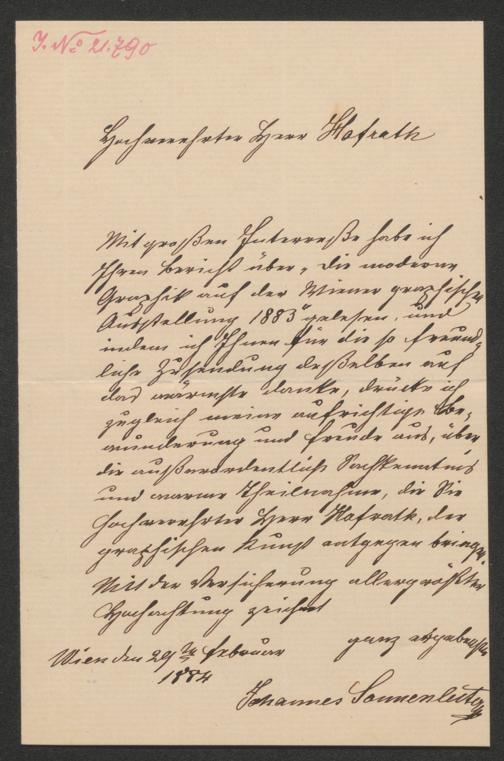 J. No 21.790
Hochverehrter Herr Hofrath
Mit großem Interreße habe ich
Ihren Bericht über „die moderne
Graphik auf der Wiener graphischen
Ausstellung 1883“ gelesen, und
indem ich Ihnen für die so freund-
liche Zusendung desselben auf
das wärmste danke, drücke ich
zugleich meine aufrichtige Be-
wunderung und Freude aus, über
die außerordentliche Sachkenntnis
und warme Theilnahme, die Sie
hochverehrter Herr Hofrath, der
graphischen Kunst entgegen bringen.
Mit der Versicherung allergrößter
Hochachtung zeichnet
ganz ergebenster
Wien den 29ten Februar
1884
Johannes Sonnenleiter